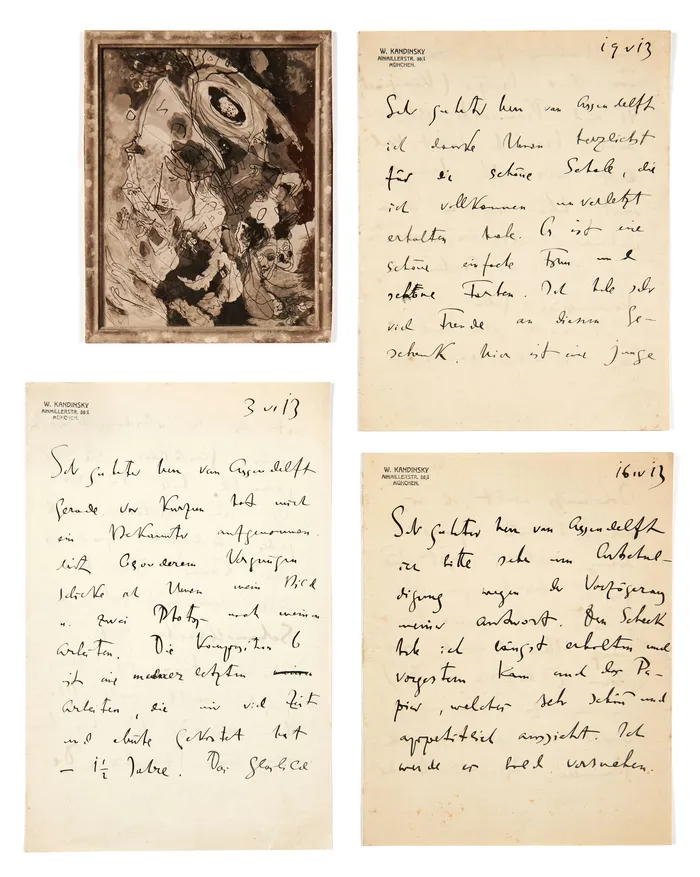 W. KANDINSKY
AINMILLERSTR. 36,I
MÜNCHEN.
19 V 13
Sehr geehrter Herr van Assendelft
ich danke Ihnen herzlichst
für die schöne Schale, die
ich vollkommen unverletzt
erhalten habe. Es ist eine
schöne einfache Form und
schöne Farben. Ich habe sehr
viel Freude an diesem Ge-
schenk. Hier ist eine junge
W. KANDINSKY
AINMILLERSTR. 36,I
MÜNCHEN.
3 VI 13
Sehr geehrter Herr van Assendelft
Gerade vor Kurzem hat mich
ein Bekannter aufgenommen.
Mit besonderem Vergnügen
schicke ich Ihnen mein Bild
u. zwei Photos nach meinen
Arbeiten. Die Komposition 6
ist eine meiner letzten
Arbeiten, die mir viel Zeit
und Mühe gekostet hat
— 1½ Jahre. Das
W. KANDINSKY
AINMILLERSTR. 36,I
MÜNCHEN.
16 IV 13
Sehr geehrter Herr van Assendelft
ich bitte sehr um Entschul-
digung wegen der Verzögerung
meiner Antwort. Den Scheck
habe ich längst erhalten und
vorgestern kam auch das Pa-
pier, welches sehr schön und
appetitlich aussieht. Ich
werde es bald versuchen.